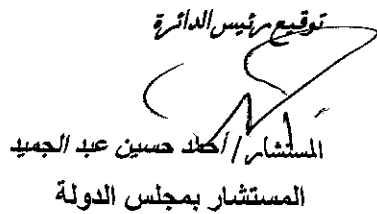 توقيع رئيس الدائرة
المستشار / أحمد حسين عبد الحميد
المستشار بمجلس الدولة